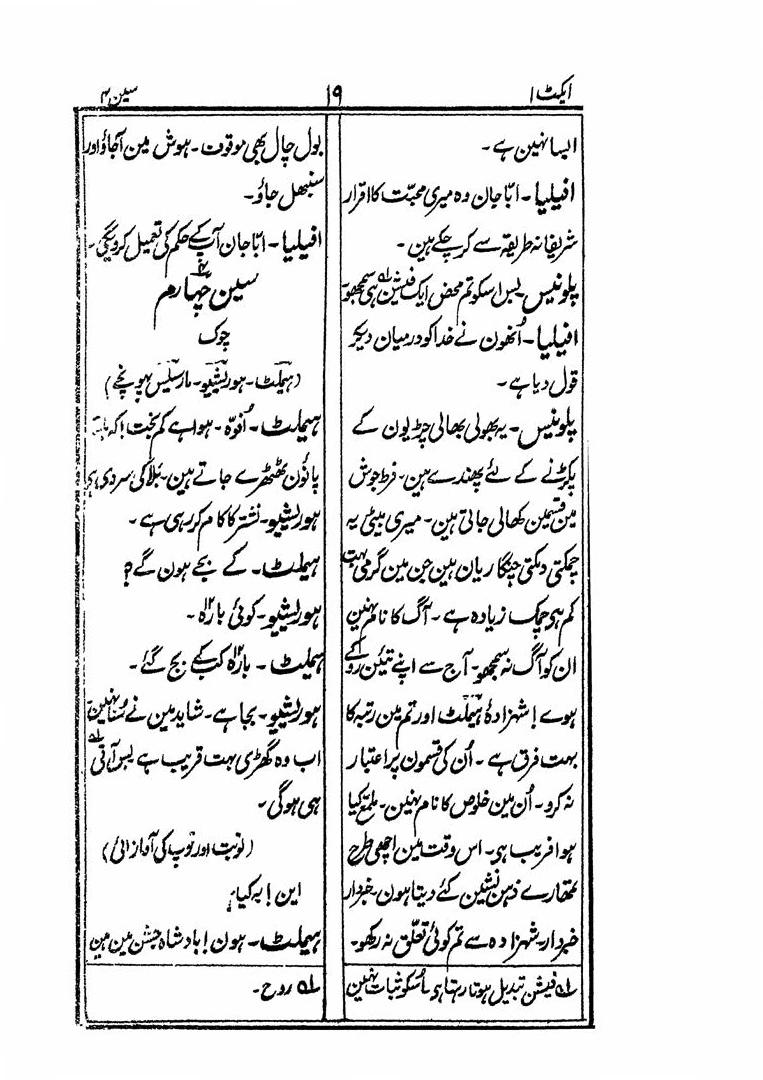 ایکٹ ۱
۱۹
سین ۴
ایسا نہین ہے۔
افیلیا۔ ابّا جان وہ میری محبّت کا اقرار
شریفانہ طریقہ سے کر چکے ہین۔
پلونیس۔ بس اسکو تم محض ایک فیشن لہ ہی سمجھو۔
افیلیا۔ اُنھون نے خدا کو درمیان دیکر
قول دیا ہے۔
پلونیس۔ یہ بھولی بھالی چڑیون کے
پکڑنے کے لئے پھندے ہین۔ فرط جوش
مین قسمین کھالی جاتی ہین۔ میری بیٹی یہ
چمکتی دمکتی چنگاریان ہین جن مین گرمی بہت
کم ہی چمک زیادہ ہے۔ آگ کا نام نہین
ان کو آگ نہ سمجھو۔ آج سے اپنے تئین روکے
ہوے! شہزادۂ ہیملٹ اور تم مین رتبہ کا
بہت فرق ہے۔ اُن کی قسمون پر اعتبار
نہ کرو۔ اُن مین خلوص کا نام نہین۔ ملمّع کیا
ہوا فریب ہی۔ اس وقت مین اچھی طرح
تمھارے ذہن نشین کئے دیتا ہون۔ خبردار
خبردار۔ شہزادہ سے تم کوئی تعلّق نہ رکھو۔
لہ فیشن تبدیل ہوتا رہتا ہی۔ اُسکو ثبات نہین
بول چال بھی موقوف۔ ہوش مین آجاؤ اور
سنبھل جاؤ۔
افیلیا۔ ابّا جان آپ کے حکم کی تعمیل کرونگی۔
سین چہارم ۴
چوک
(ہیملٹ۔ ہوریشیو۔ مارسلیس پہونچے)
ہیملٹ۔ اُفوّہ۔ ہوا ہے کم بخت! کہ ہاتھ
پاؤن ٹھٹھرے جاتے ہین۔ بَلا کی سردی ہی
ہوریشیو۔ نشتر کا کام کر رہی ہے۔
ہیملٹ۔ کے بجے ہون گے؟
ہوریشیو۔ کوئی بارہ ۱۲۔
ہیملٹ۔ بارہ ۱۲ کب کے بج گئے۔
ہوریشیو۔ بجا ہے۔ شاید مین نے سُنا نہین
اب وہ گھڑی بہت قریب ہے بس آتی لہ
ہی ہوگی۔
(نوبت اور توپ کی آواز آئی)
این! یہ کیا؟
ہیملٹ۔ ہون! بادشاہ جشن مین ہین
لہ روح۔